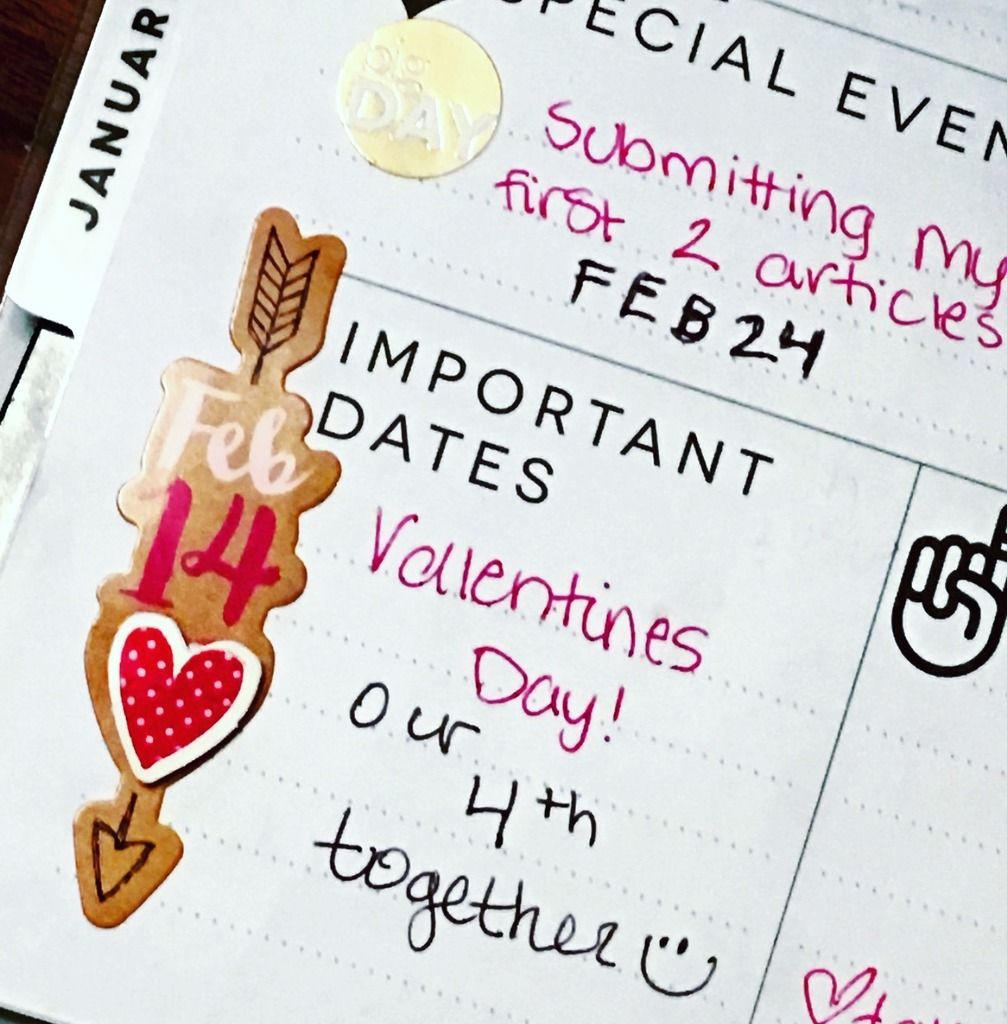 JANUAR
SPECIAL EVEN
big
DAY
Submitting my
first 2 articles
FEB 24
IMPORTANT
DATES
Feb
14
Valentines
Day!
our
4th
together